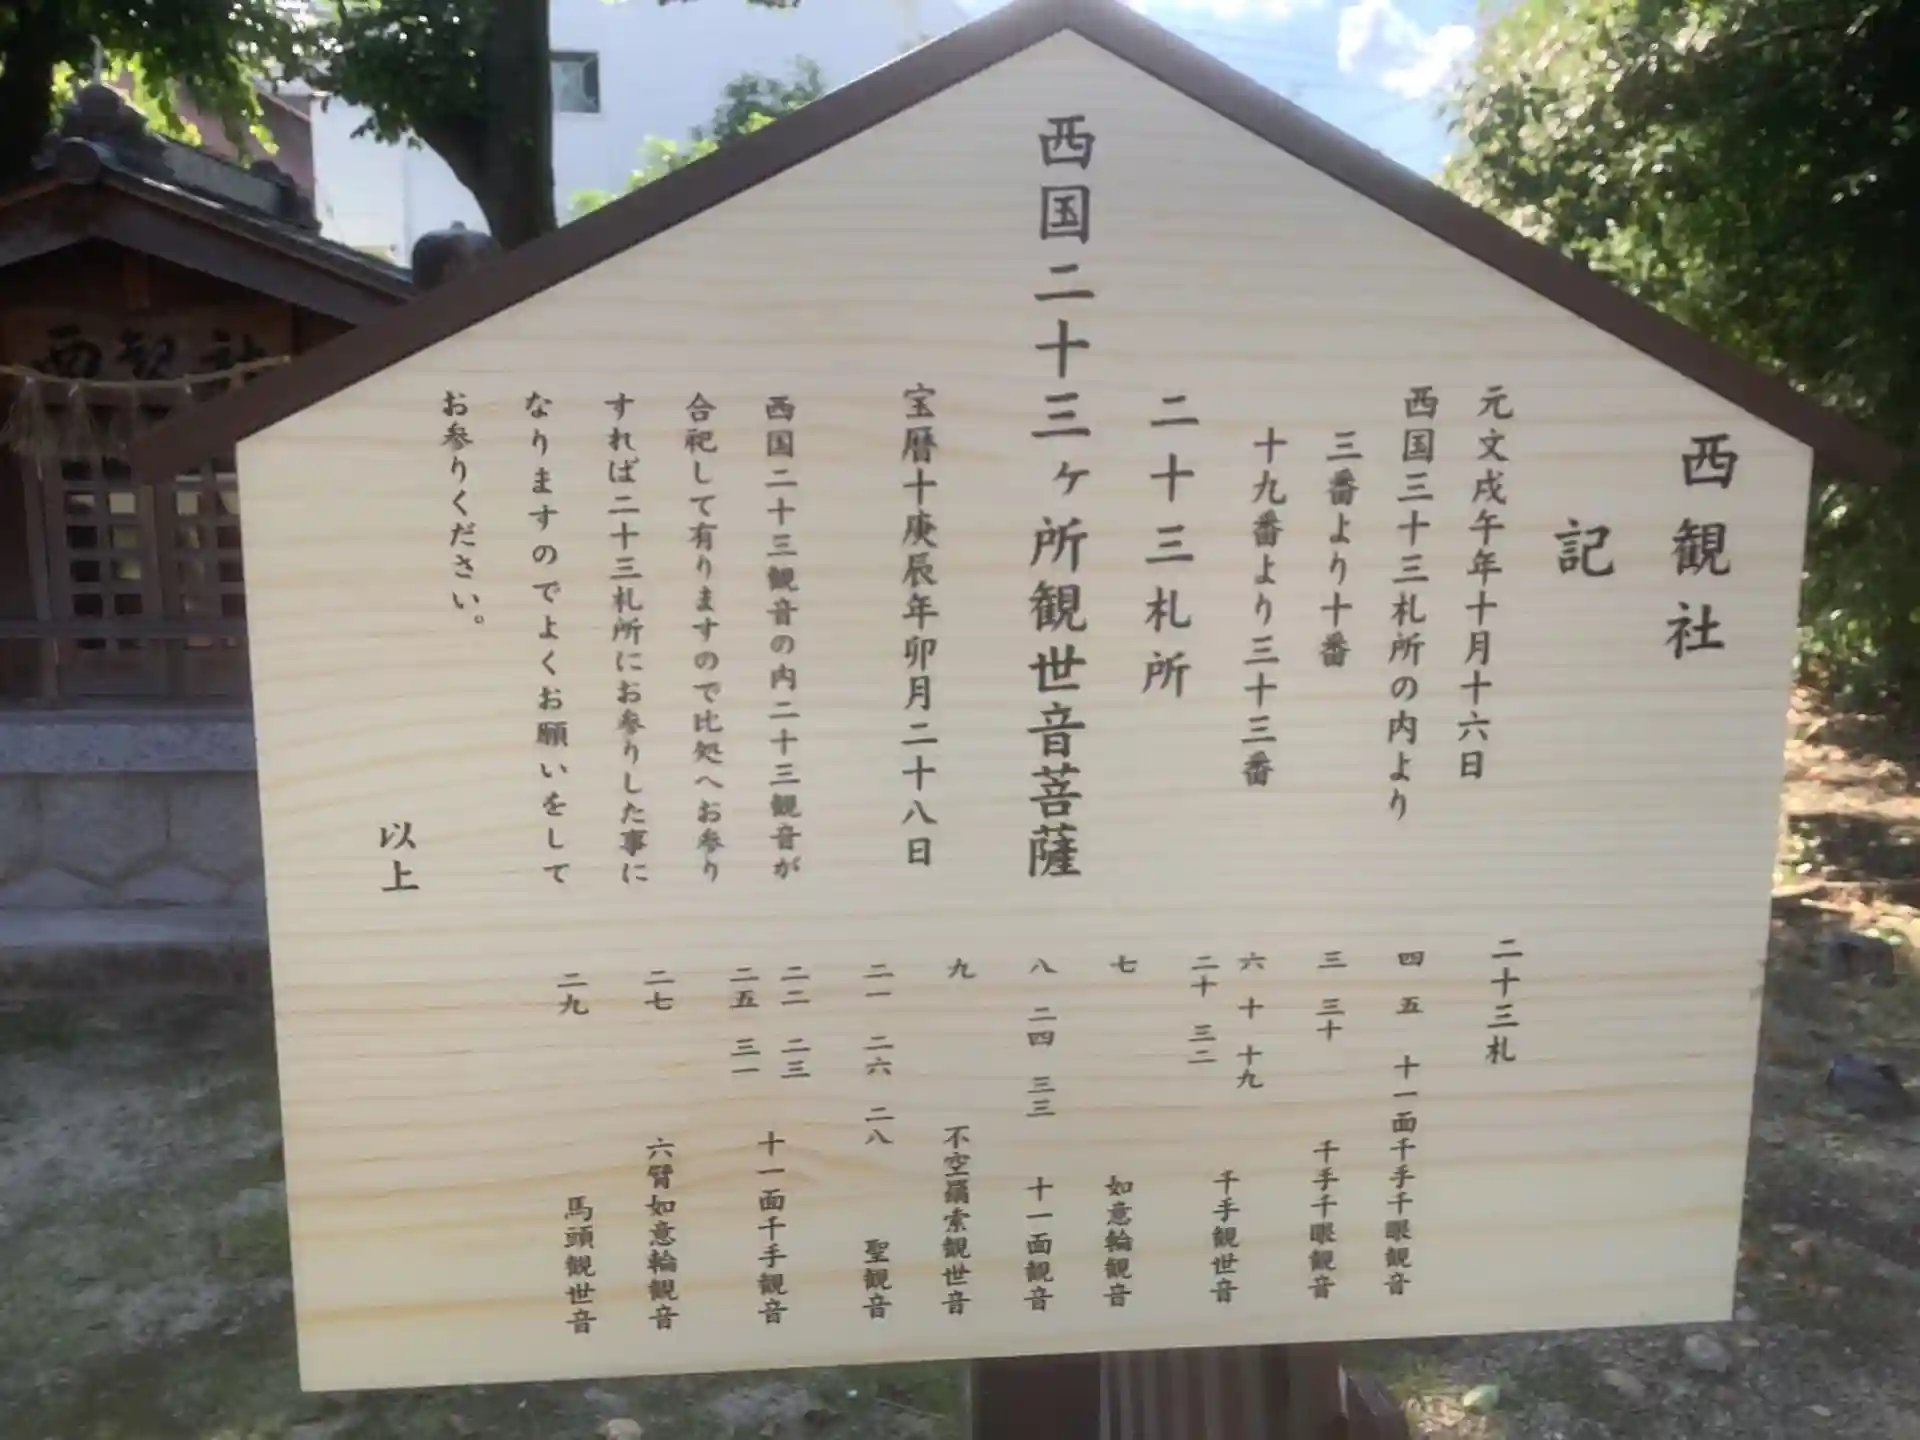 西観社
記
元文戌午年十月十六日
西国三十三札所の内より
三番より十番
十九番より三十三番
二十三札所
西国二十三ヶ所観世音菩薩
宝暦十庚辰年卯月二十八日
西国二十三観音の内二十三観音が
合祀して有りますので比処へお参り
すれば二十三札所にお参りした事に
なりますのでよくお願いをして
お参りください。
以上
二十三札
四 五 十一面千手千眼観音
三 三十 千手千眼観音
六 十 十九
二十 三二 千手観世音
七 如意輪観音
八 二四 三三 十一面観音
九 不空羂索観世音
二一 二六 二八 聖観音
二二 二三
二五 三一 十一面千手観音
二七 六臂如意輪観音
二九 馬頭観世音
西観社